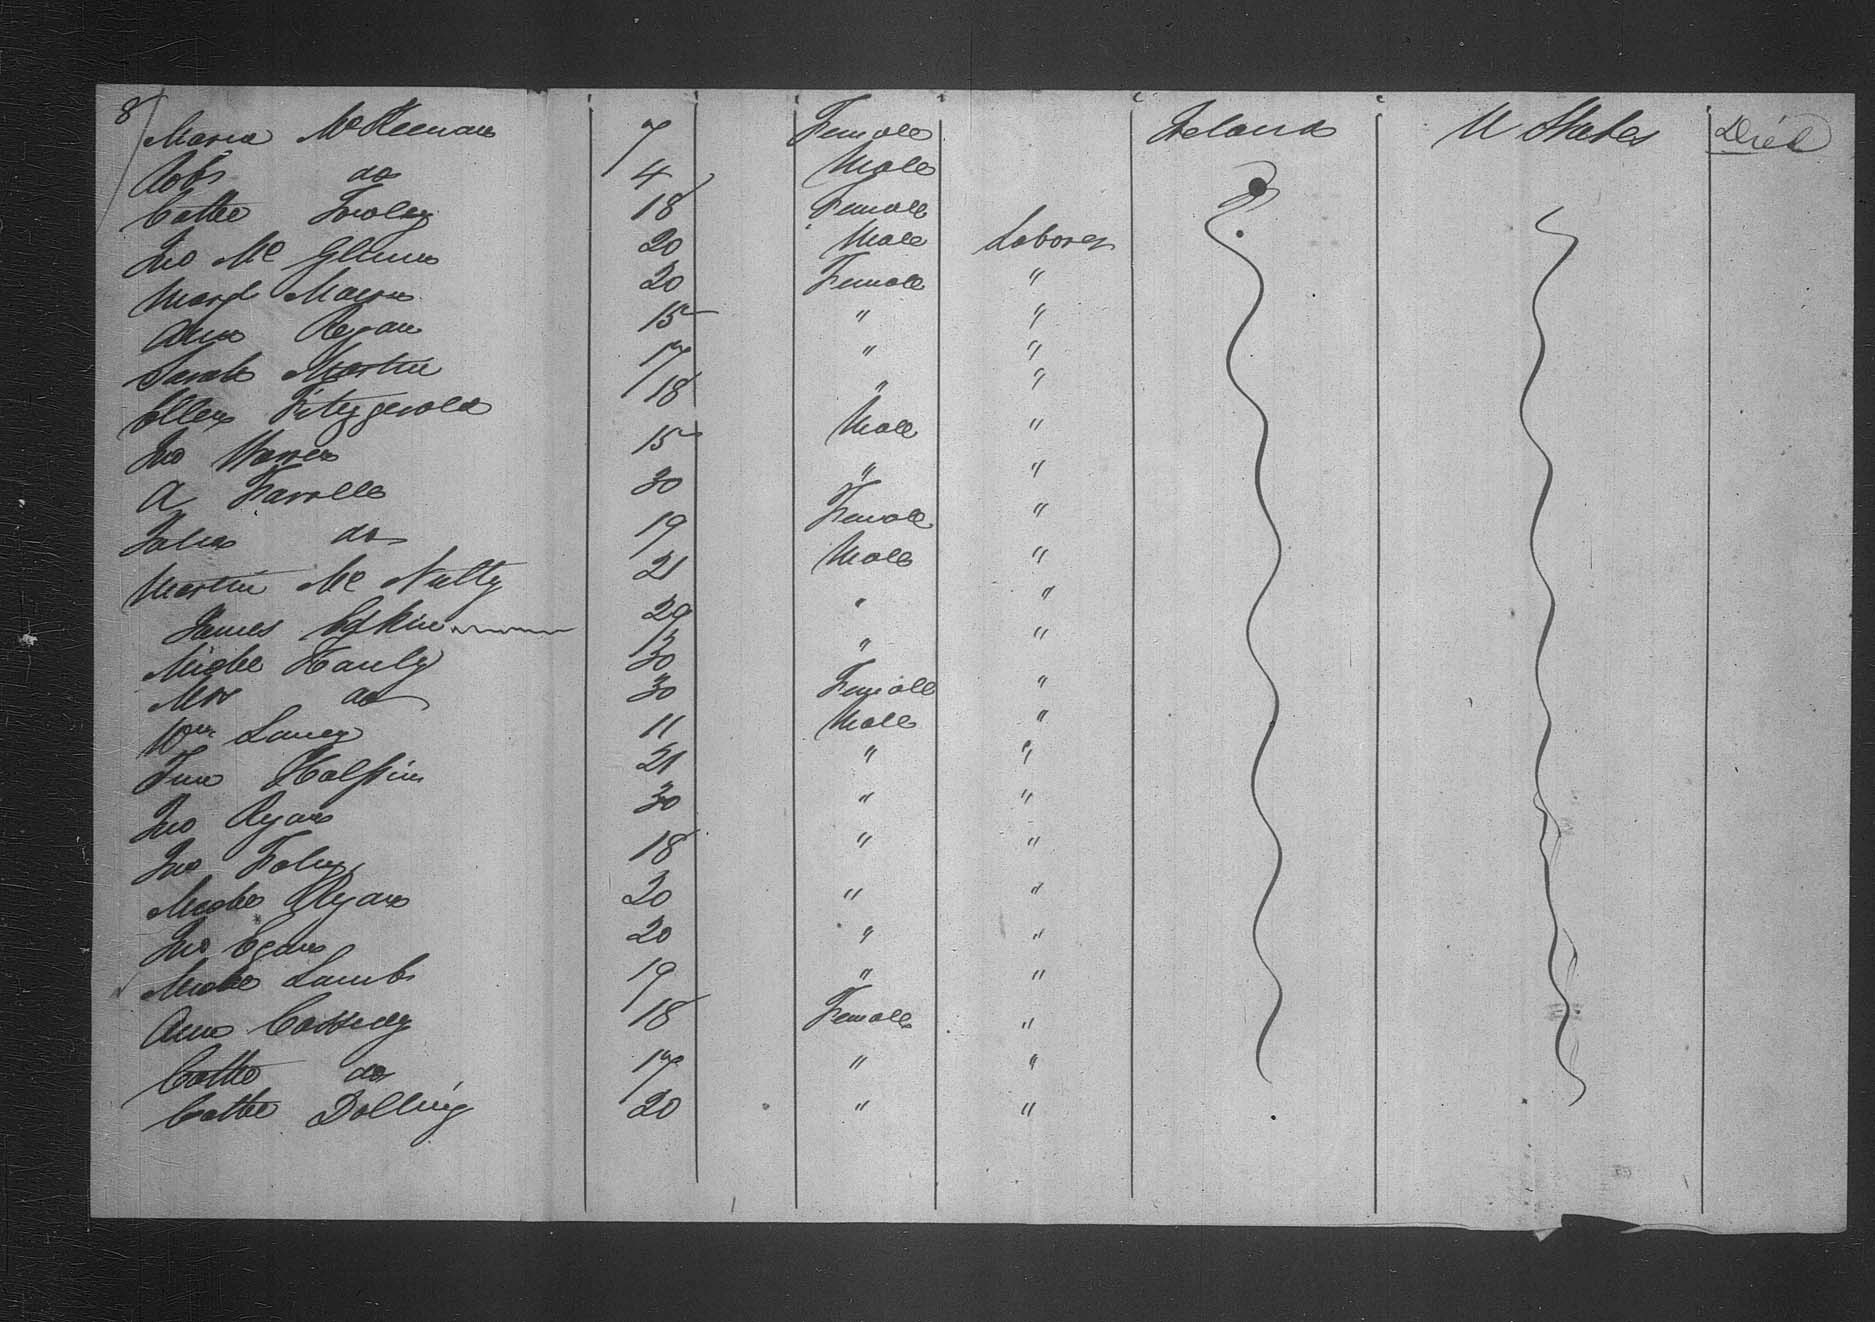 8
Maria McKeenan 7 Female Ireland U States Died
Robt do 4 Male
Cathe Fowley 18 Female
Jno Mc Glinn 20 Male Laborer
Margt 20 Female "
Ann Regan 15 " "
Sarah Martin 17 " "
Ellen Fitzgerald 18 " "
Jno 15 Male "
A Farrell 30 " "
Julia do 19 Female "
Martin Mc Nulty 21 Male "
James 29 " "
Michl Hanly 30 " "
Mrs do 30 Female "
Wm Laney 11 Male "
Tim Halpin 21 " "
Jno Ryan 30 " "
Jno Foley 18 " "
Michl Ryan 20 " "
Jno Egan 20 " "
Michl Lamb 19 " "
Ann Cassidy 18 Female "
Cathe do 17 " "
Cathe Dolling 20 " "